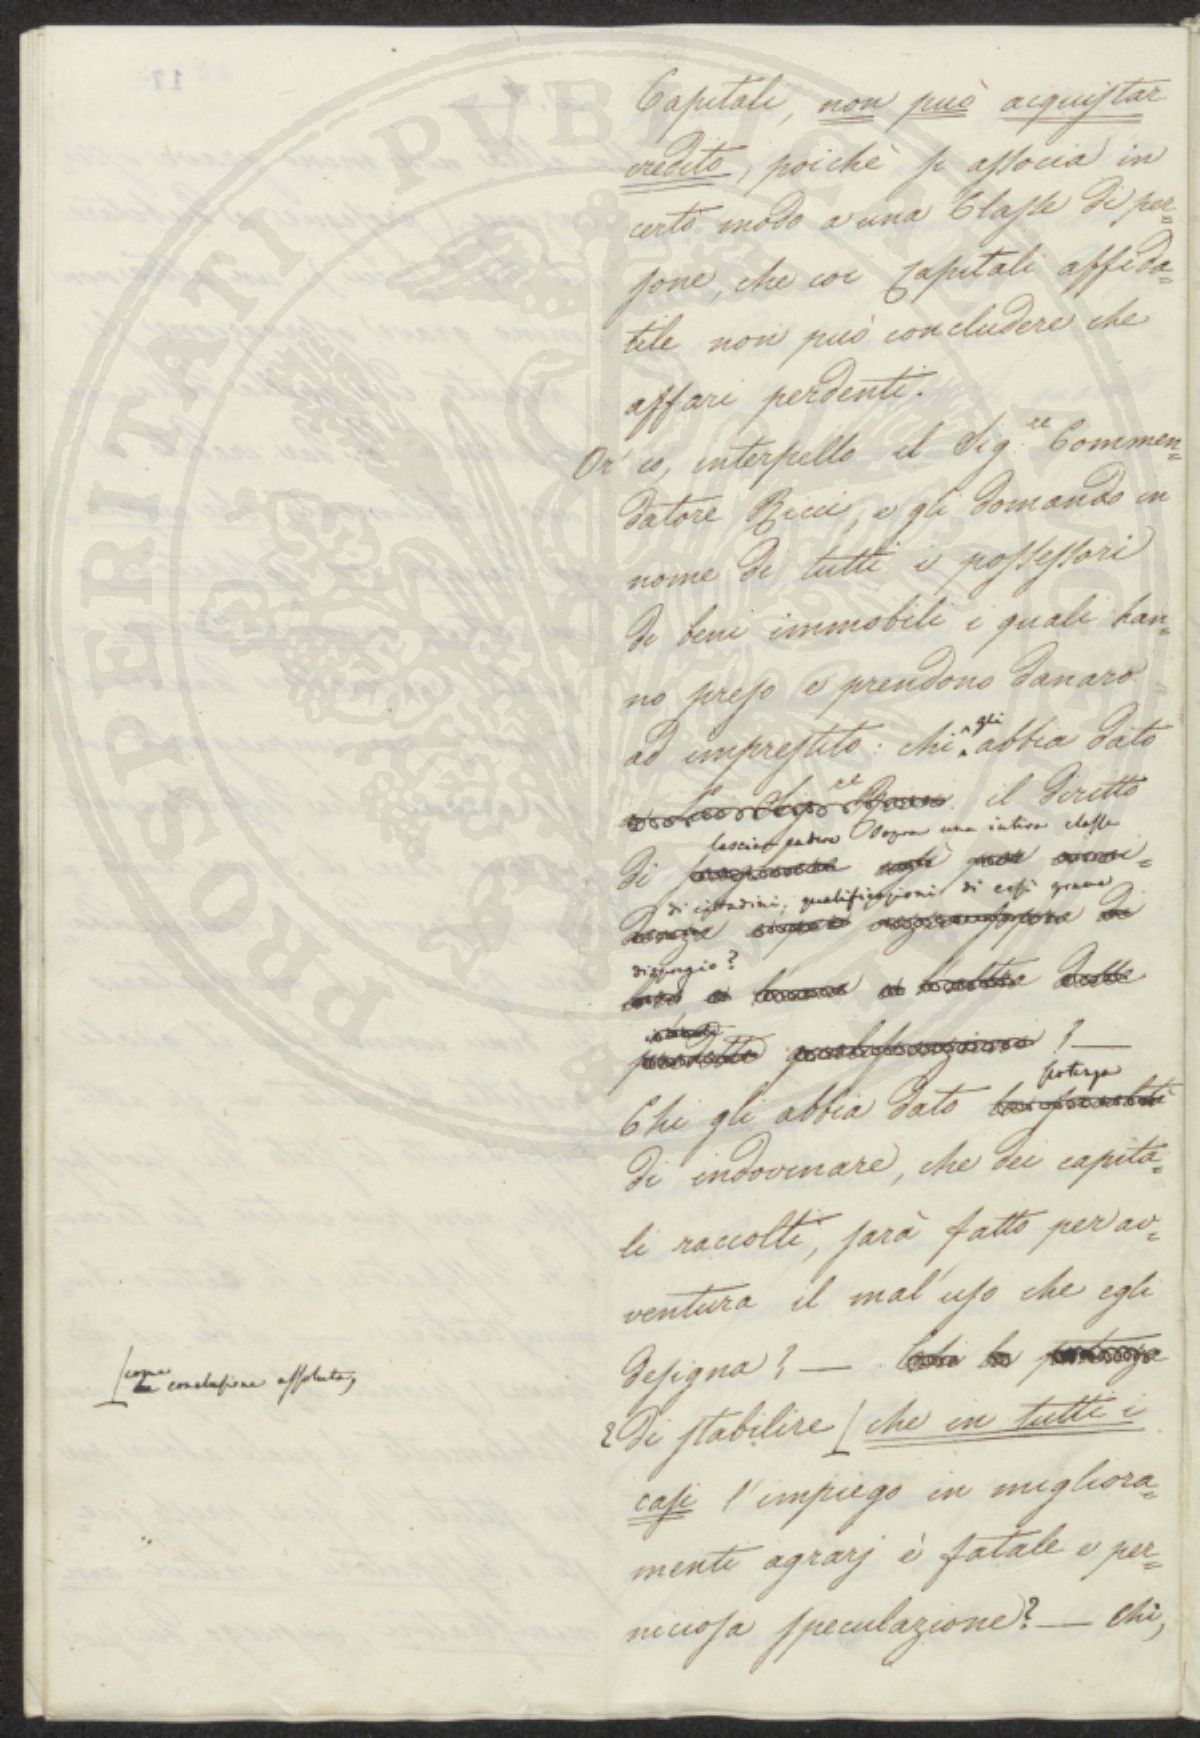 Capitali, non può acquistar
credito, poichè si associa in
certo modo a una Classe di per=
sone, che coi Capitali affida=
tile non può concludere che
affari perdenti.
Or' io, interpello il Sig.re Commen=
datore Ricci, e gli domando in
nome di tutti i possessori
di beni immobili i quali han=
no preso e prendono danaro
ad imprestito: chi gli abbia dato
il diretto
lasciar cadere sopra una intiera classe
di
di cittadini, qualificazioni di così grave
dispregio?
? —
potenza
Chi gli abbia dato
di indovinare, che dei capita=
li raccolti, sarà fatto per av=
ventura il mal'uso che egli
designa? —
come conclusione assoluta,
di stabilire [ che in tutti i
casi l'impiego in migliora=
menti agrarj è fatale e per=
niciosa speculazione? — Chi,
PROSPERITATI PVBLICAE